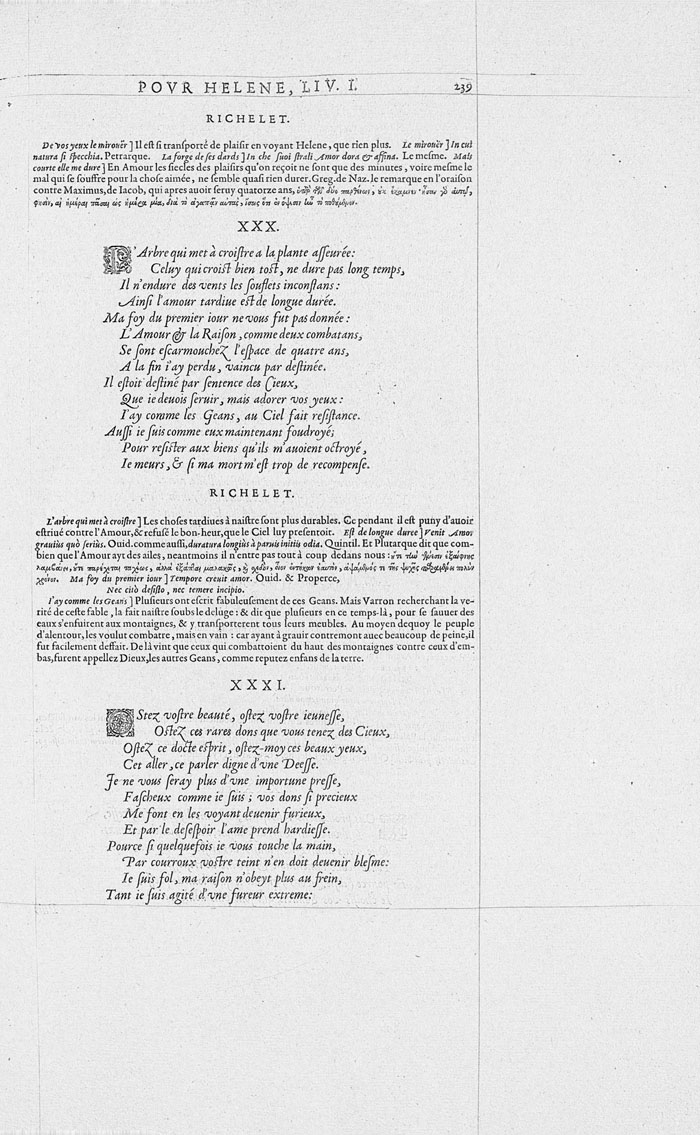 POVR HELENE, LIV. I. 239
RICHELET.
De vos yeux le mirouër ] Il est si transporté de plaisir en voyant Helene, que rien plus. Le mirouër ] In cui
natura si specchia. Petrarque. La forge de ses dards ] In che suoi strali Amor dora & affina. Le mesme. Mais
courte elle me dure ] En Amour les siecles des plaisirs qu'on reçoit ne sont que des minutes, voire mesme le
mal qui se souffre pour la chose aimée, ne semble quasi rien durer. Greg. de Naz. le remarque en l'oraison
contre Maximus, de Iacob, qui apres auoir seruy quatorze ans,
XXX.
L'Arbre qui met à croistre a la plante asseurée:
Celuy qui croist bien tost, ne dure pas long temps,
Il n'endure des vents les souflets inconstans:
Ainsi l'amour tardiue est de longue durée.
Ma foy du premier iour ne vous fut pas donnée:
L'Amour & la Raison, comme deux combatans,
Se sont escarmouchez l'espace de quatre ans,
A la fin i'ay perdu, vaincu par destinée.
Il estoit destiné par sentence des Cieux,
Que ie deuois seruir, mais adorer vos yeux:
I'ay comme les Geans, au Ciel fait resistance.
Aussi ie suis comme eux maintenant foudroyé;
Pour resister aux biens qu'ils m'auoient octroyé,
Ie meurs, & si ma mort m'est trop de recompense.
RICHELET.
L'arbre qui met à croistre ] Les choses tardiues à naistre sont plus durables. Ce pendant il est puny d'auoir
estriué contre l'Amour, & refusé le bon-heur, que le Ciel luy presentoit. Est de longue duree ] Venit Amor
grauiùs quò seriùs. Ouid. comme aussi, duratura longiùs à paruis initiis odia. Quintil. Et Plutarque dit que com-
bien que l'Amour ayt des ailes, neantmoins il n'entre pas tout à coup dedans nous:
Ma foy du premier iour ] Tempore creuit amor. Ouid. & Properce,
Nec citò desisto, nec temere incipio.
I'ay comme les Geans ] Plusieurs ont escrit fabuleusement de ces Geans. Mais Varron recherchant la ve-
rité de ceste fable, la fait naistre soubs le deluge: & dit que plusieurs en ce temps-là, pour se sauuer des
eaux s'enfuirent aux montaignes, & y transporterent tous leurs meubles. Au moyen dequoy le peuple
d'alentour, les voulut combatre, mais en vain: car ayant à grauir contremont auec beaucoup de peine, il
fut facilement deffait. De là vint que ceux qui combattoient du haut des montaignes contre ceux d'em-
bas, furent appellez Dieux, les autres Geans, comme reputez enfans de la terre.
XXXI.
OStez vostre beauté, ostez vostre ieunesse,
Ostez ces rares dons que vous tenez des Cieux,
Ostez ce docte esprit, ostez-moy ces beaux yeux,
Cet aller, ce parler digne d'vne Deesse.
Je ne vous seray plus d'vne importune presse,
Fascheux comme ie suis; vos dons si precieux
Me font en les voyant deuenir furieux,
Et par le desespoir l'ame prend hardiesse.
Pource si quelquefois ie vous touche la main,
Par courroux vostre teint n'en doit deuenir blesme:
Ie suis fol, ma raison n'obeyt plus au frein,
Tant ie suis agité d'vne fureur extreme: